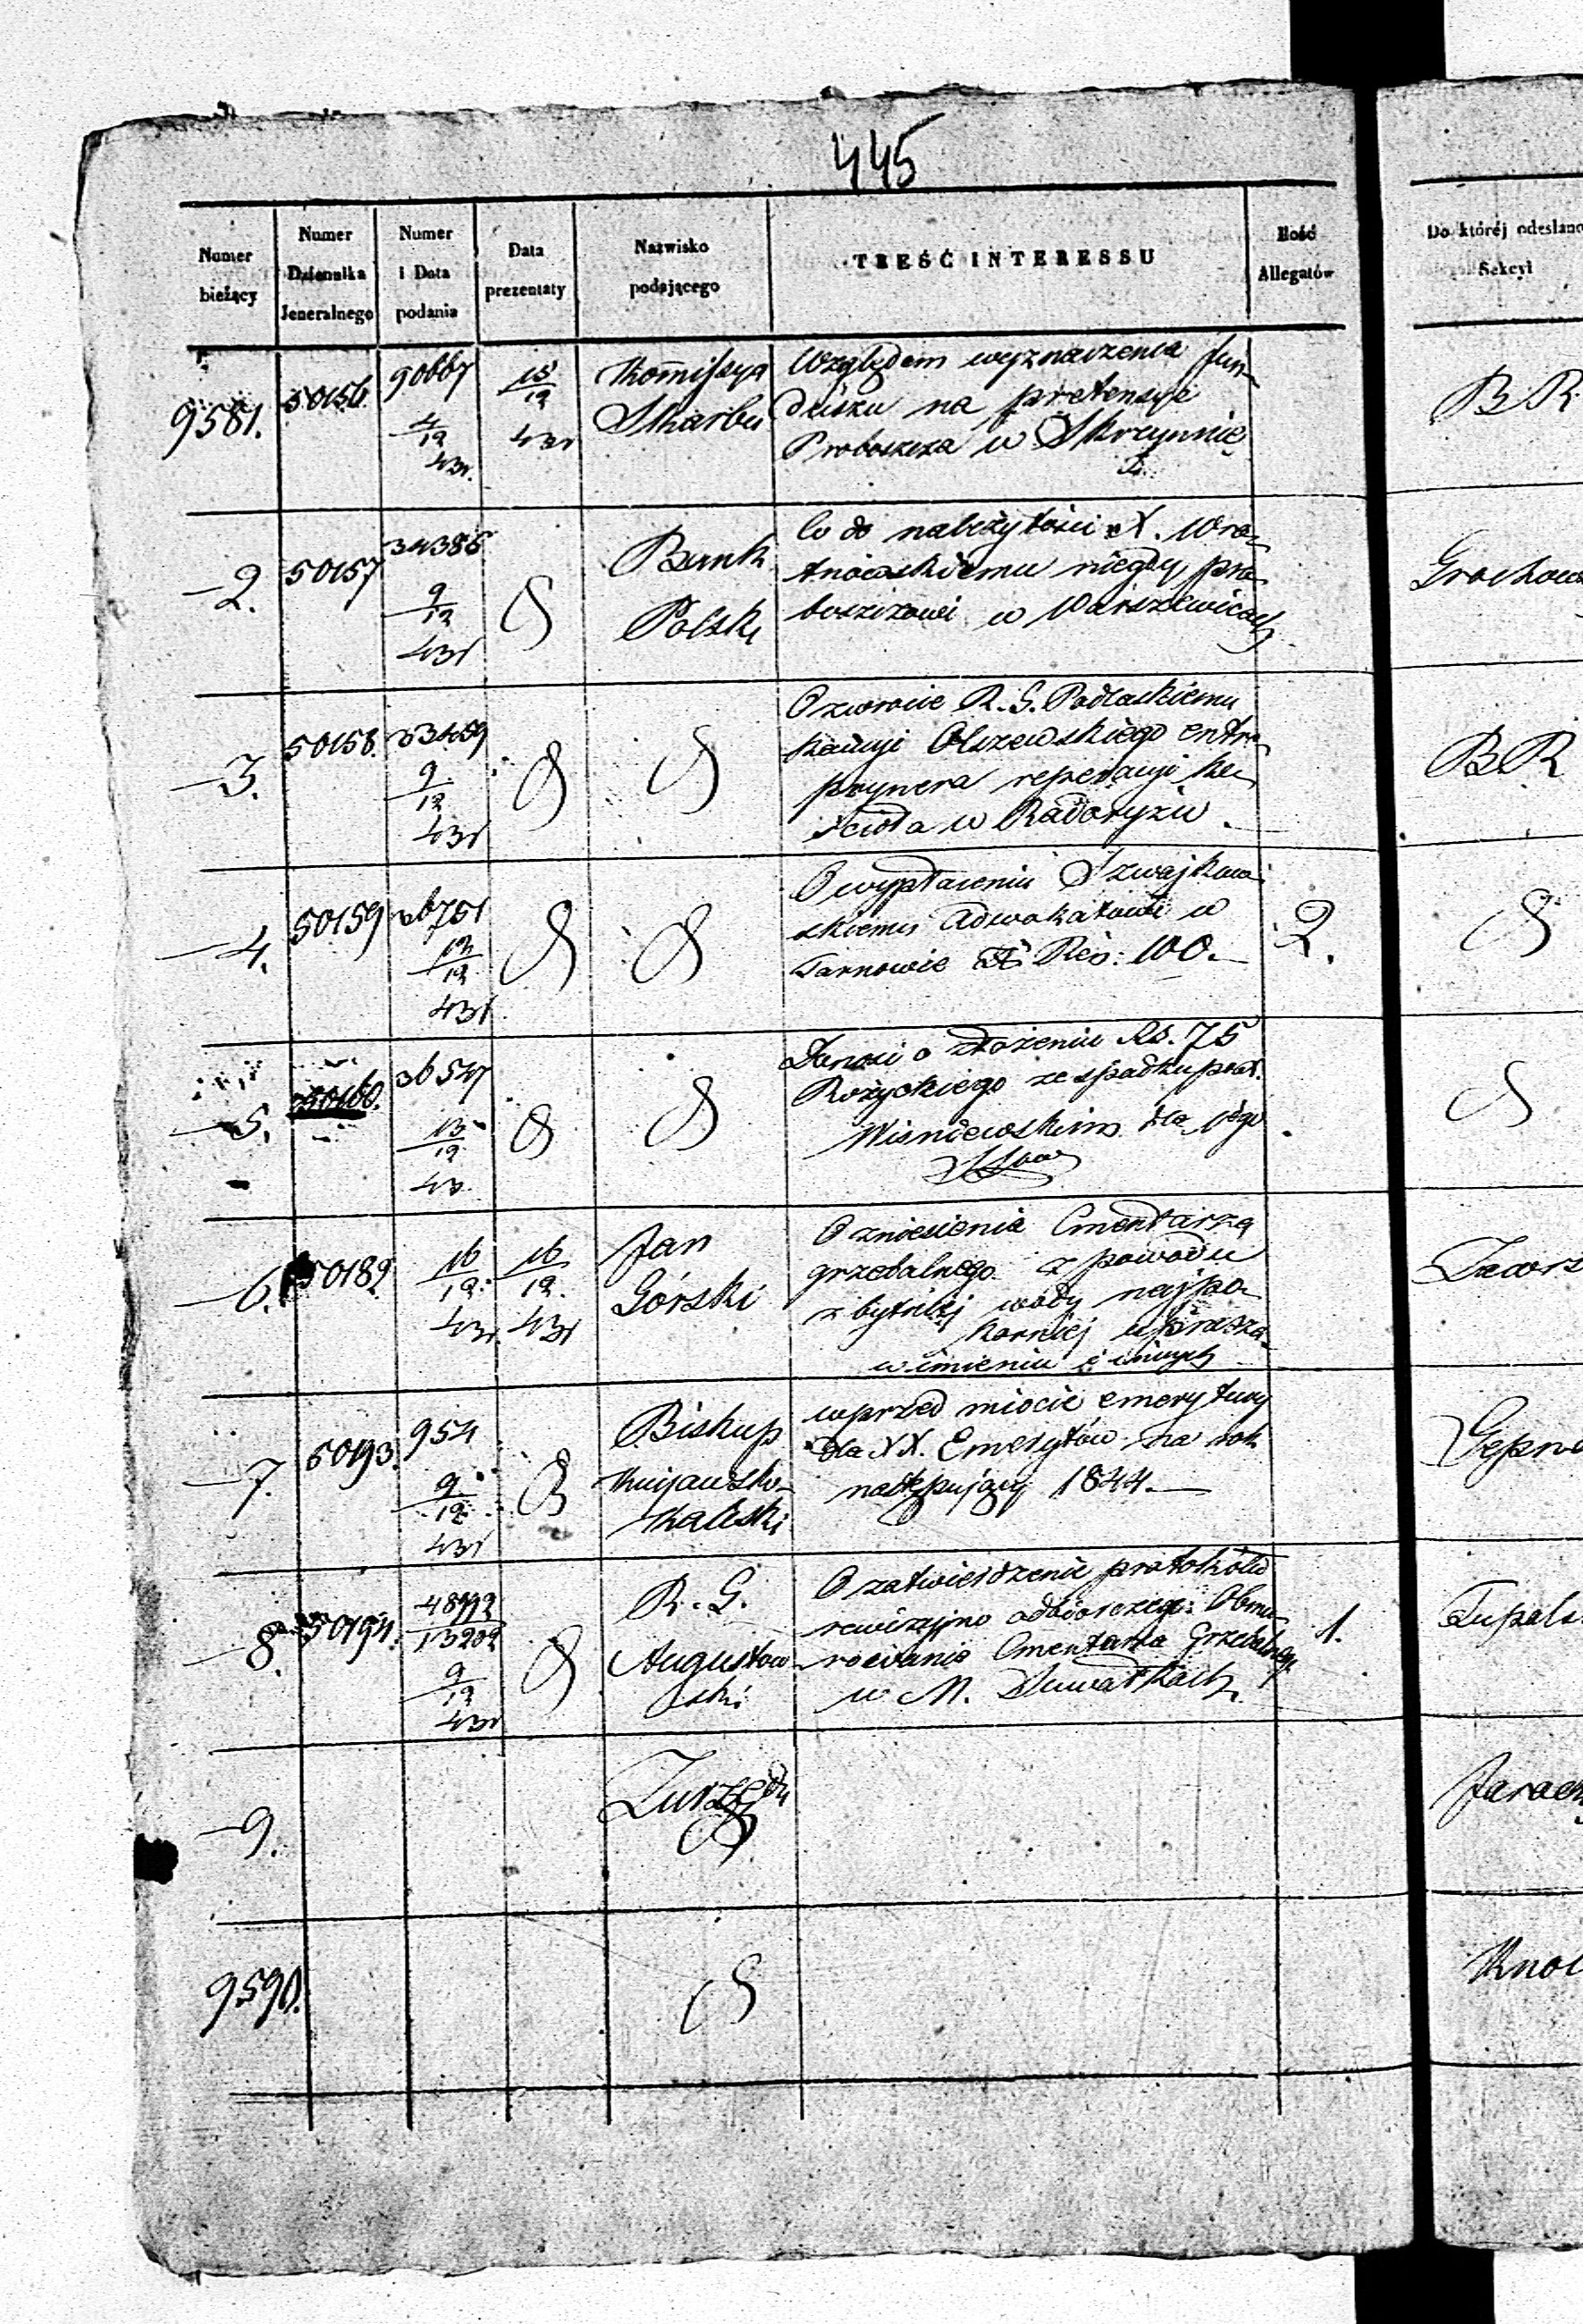 445
Numer bieżący
Numer Dziennika Jeneralnego
Numer i Data podania
Data prezentaty
Nazwisko podającego
TREŚĆ INTERESSU
Ilość Allegatów
Do któréj odesłano Sekcyi
9581.
50156.
90667
4/12 43r.
15/12 43r
Kommissya
Skarbu
Względem wyznaczenia fun-
duszu na pretensye
Proboszcza w Skrzynnie
BR
—2.
50157
34385
9/12 43r
Bank
Polski
Co do należytości X. Wro-
tnowskiemu niegdy pro-
boszczowi w Warszewicach
Grochow
—3.
50158.
33459
9/12 43r
O zwrocie R. G. Podlaskiemu
kaucyi Olszewskiego entre-
prynera reperacyi Ko-
ścioła w Radoryżu
BR
—4.
50159
36751
12/12 43r
O wypłaceniu Szwajkow-
skiemu Adwokatowi w
Tarnowie Reń: 100.—
2.
—5.
50160.
36547
13/12 43
Donosi o złożeniu Rs. 75
Rożyckiego ze spadku po
Wisniewskim dla
—6.
50189
16/12 43r.
16/12 43r
Jan
Górski
O zniesienie Cmentarza
grzebalnego z powodu
zbytniej wody najpo-
korniej uprasza
w imieniu i innych
Jawor
—7.
50193.
954
9/12 43r
Biskup
Kujawsko-
Kaliski
w przedmiocie emerytury
dla XX. Emerytów na rok
następujący 1844.—
—8.
50194.
48992/13202
9/12 43r
R. G.
Augustow-
ski
O zatwierdzenie protokółu
rewizyjno odbiorczego Obmu-
rowania Cmentarza Grzebalnego
w M. Suwałkach
1.
Tupals
—9.
Z urzędu
Jarac
9590.
Knol